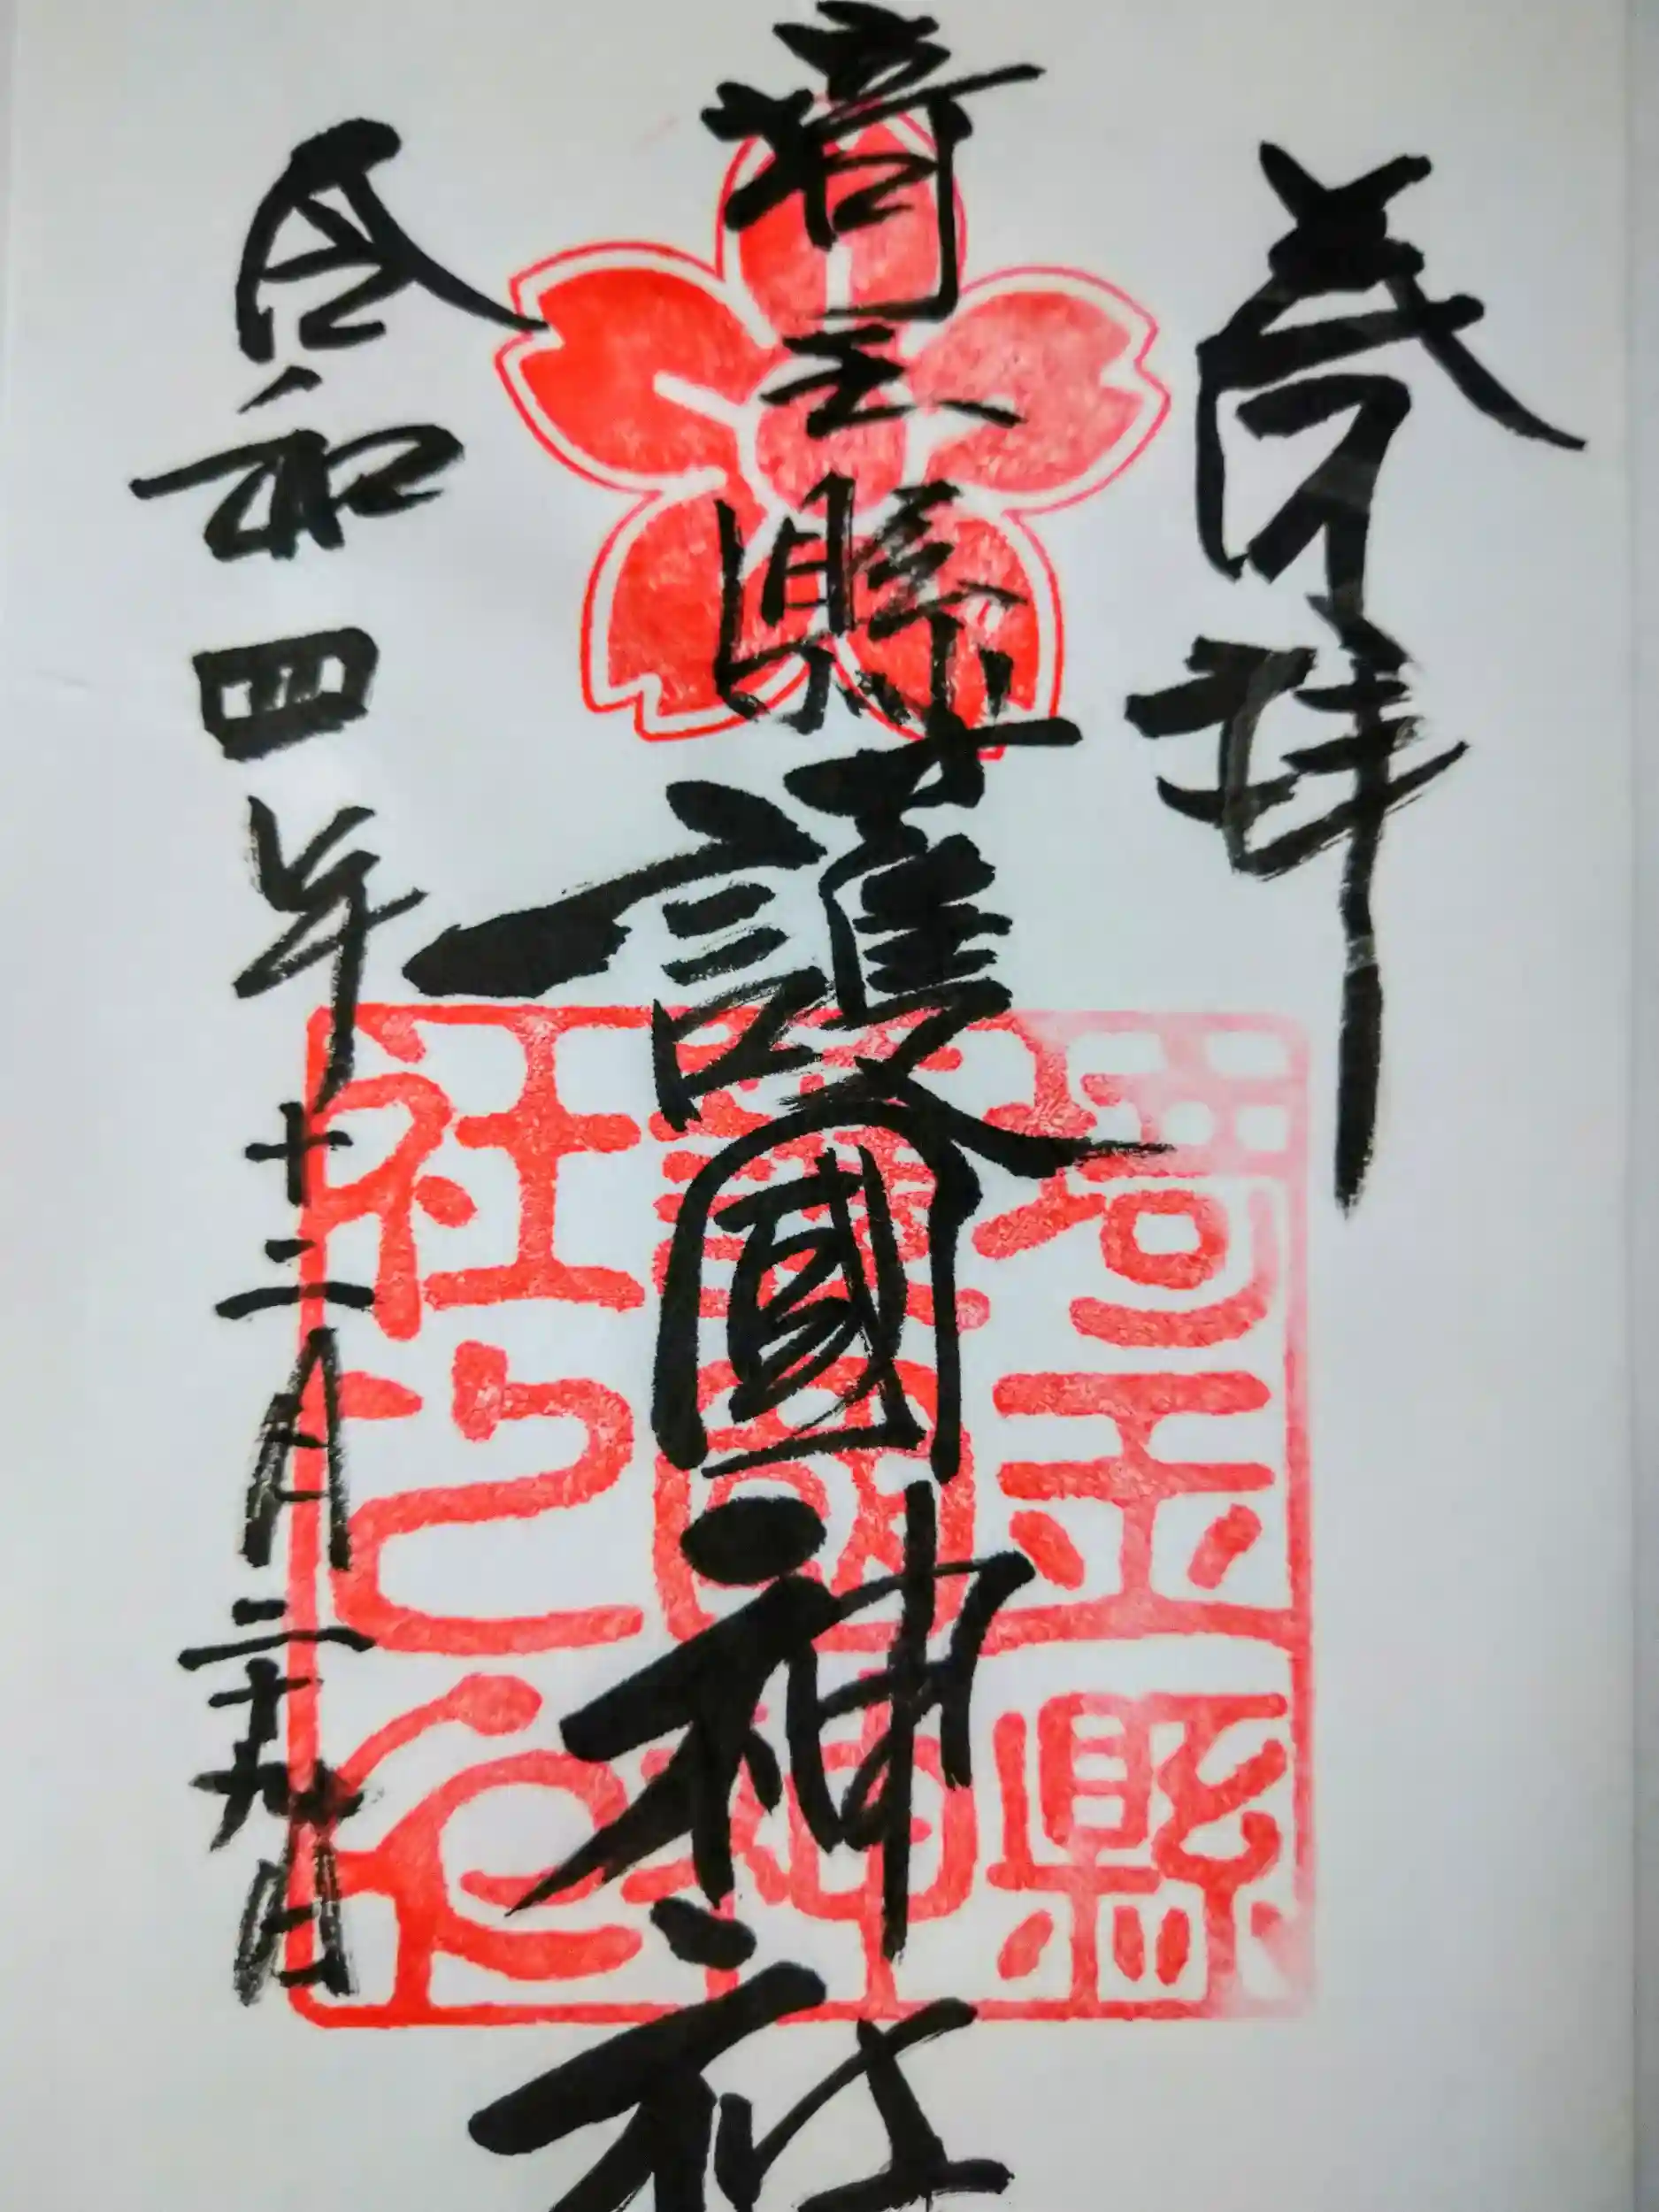 奉拝
埼玉縣護國神社
令和四年十二月二十九日
埼玉縣
護國神
社之印